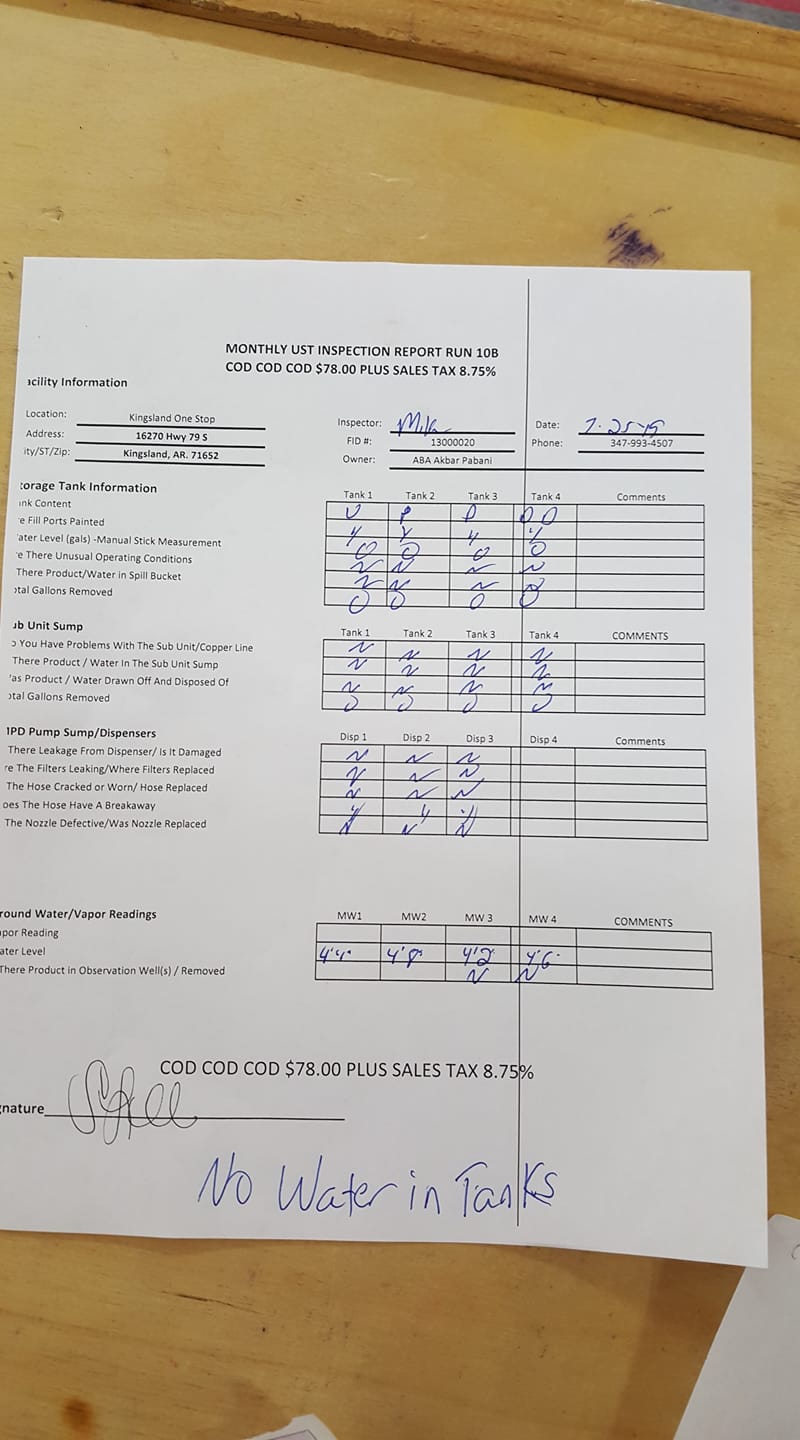 MONTHLY UST INSPECTION REPORT RUN 10B
COD COD COD $78.00 PLUS SALES TAX 8.75%
cility Information
Location: Kingsland One Stop Inspector: Date:
Address: 16270 Hwy 79 S FID #: 13000020 Phone: 347-993-4507
ity/ST/Zip: Kingsland, AR. 71652 Owner: ABA Akbar Pabani
orage Tank Information Tank 1 Tank 2 Tank 3 Tank 4 Comments
nk Content U P D
e Fill Ports Painted Y Y Y Y
ater Level (gals) -Manual Stick Measurement 0 0 0 0
e There Unusual Operating Conditions N N N N
There Product/Water in Spill Bucket N N N N
otal Gallons Removed 0 0 0 0
ub Unit Sump Tank 1 Tank 2 Tank 3 Tank 4 COMMENTS
o You Have Problems With The Sub Unit/Copper Line N N N N
There Product / Water In The Sub Unit Sump N N N N
as Product / Water Drawn Off And Disposed Of N N N N
otal Gallons Removed 0 0 0 0
MPD Pump Sump/Dispensers Disp 1 Disp 2 Disp 3 Disp 4 Comments
There Leakage From Dispenser/ Is It Damaged N N N
re The Filters Leaking/Where Filters Replaced N N N
The Hose Cracked or Worn/ Hose Replaced N N N
oes The Hose Have A Breakaway Y Y Y
The Nozzle Defective/Was Nozzle Replaced N N N
round Water/Vapor Readings MW1 MW2 MW 3 MW 4 COMMENTS
apor Reading
ater Level 4'4" 4'8" 4'2" 4'6"
There Product in Observation Well(s) / Removed N N
COD COD COD $78.00 PLUS SALES TAX 8.75%
gnature
No Water in Tanks